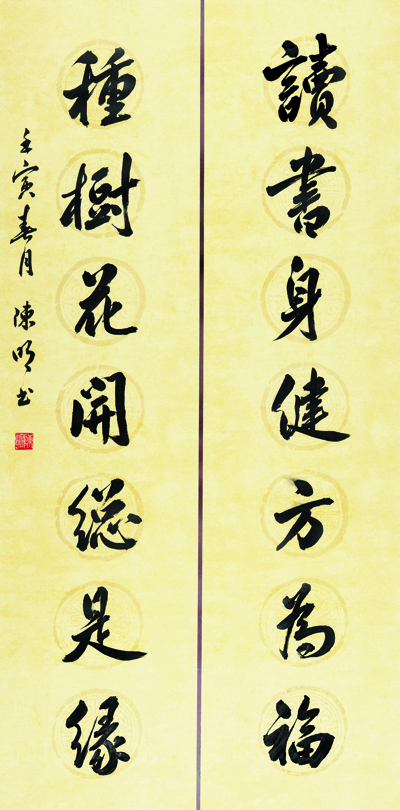 讀書身健方為福
種樹花開總是緣
壬寅春月 陳明書